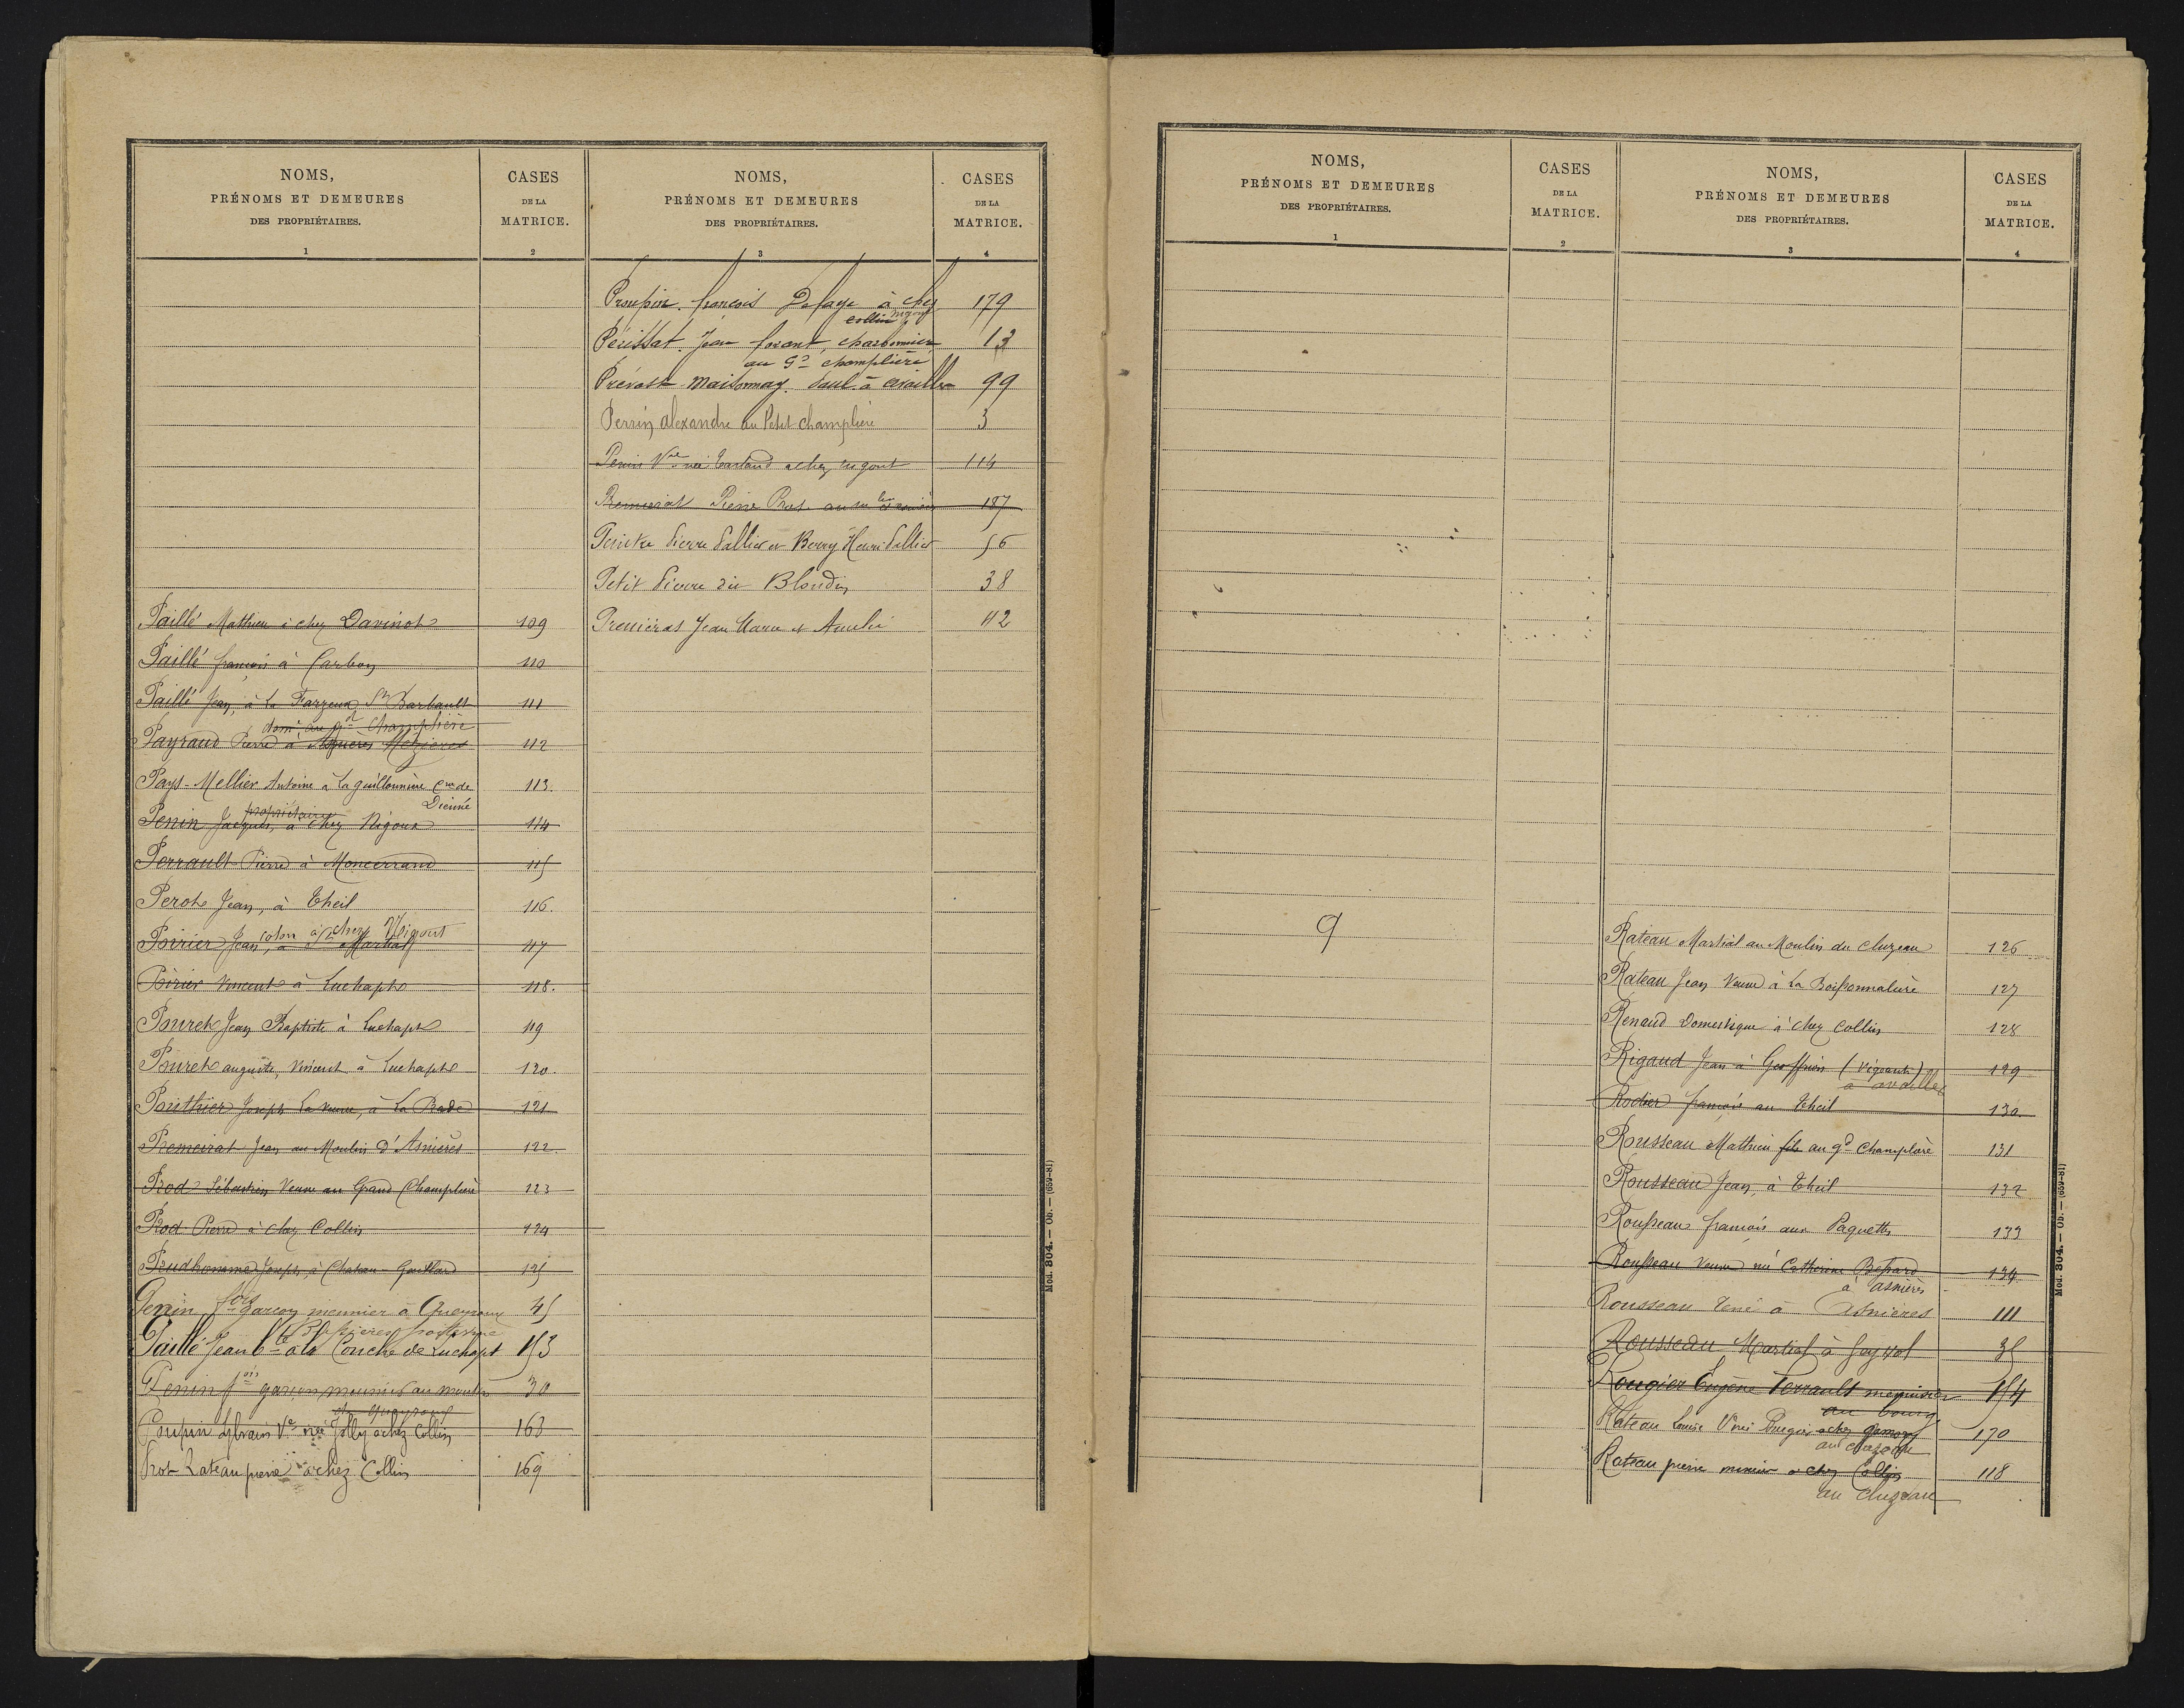 NOMS,
PRÉNOMS ET DEMEURES
DES PROPRIÉTAIRES.
1
CASES
DE LA
MATRICE.
2
Paillé Mathieu à chez Davinot 109
Paillé françois à Carbon 110
Paillé Jean, à la Fazzeux St Barbault 111
domt au gd Champlière
Payraud Pierre à Asnières Mezieres 112
Pays-Mellier Antoine à la guillonnière Cne de 113.
Dienné
propriétaire
Penin Jacques, à chez Rigoux 114
Perrault Pierre à Moncerrand 115
Perot Jean, à Theil 116.
colon à chez Vligout
Poirier Jean, à St Martial 117
Poirier Vincent à Luchapt 118.
Pouret Jean Baptiste à Luchapt 119
Pouret auguste, Vincent à Luchapt 120.
Pouthier Joseph la veuve, à La Rade 121
Premeirat Jean au Moulin d'Asnières 122.
Prod Sébastien Veuve au Grand Champlière 123
Prod Pierre à chez Collin 124
Prudhomme Joseph, à Chateau-Gaillard 125
Penin fois garçon meunier à Queyroux 45
Paillé Jean Bte à la Couche de Luchapt 153
Penin fois garçon meunier au moulin 30
de Queyroux
Poupin Sylvain Ve née Jolly à chez Collin 163
Prot Rateau pierre à chez Collin 169
NOMS,
PRÉNOMS ET DEMEURES
DES PROPRIÉTAIRES.
3
CASES
DE LA
MATRICE.
4
Proupin françois Defaye à chez 179
collin
Périssat Jean forant, charbonnier 13
au Gd champlière
Prévost Maisonnay Paul à availles 99
Perrin alexandre au Petit champlière 3
Penin Vve née Tartaud a chez rigout 114
Premeirat Pierre Prot 187
Peintre Pierre Pallier et Berry Henri Pallier 56
Petit Pierre dit Blondin 38
Premièras Jean Marie et Amélie 42
Mod. 804. — Ob. — (659-81)
NOMS,
PRÉNOMS ET DEMEURES
DES PROPRIÉTAIRES.
1
CASES
DE LA
MATRICE.
2
9
NOMS,
PRÉNOMS ET DEMEURES
DES PROPRIÉTAIRES.
3
CASES
DE LA
MATRICE.
4
Rateau Martial au Moulin du Cluzeau 126
Rateau Jean Veuve à La Boissonnalière 127
Renaud Domestique à chez Collin 128
Rigaud Jean à Geoffrion (Vigeant) 129
à availles
Rodier françois au Theil 130.
Rousseau Mathieu fils au gd Champlière 131
Rousseau Jean, à Theil 132
Rousseau françois aux Paquetts 133
Rousseau veuve née Catherine Bessard 134
à asnières
Rousseau René à Asnières 111
Rousseau Martial à Jayvat 35
Rougier Eugène Perrault menuisier 154
au bourg
Rateau Louise Ve née Pougier à chez 170
au cluzeau
Rateau pierre meunier à chez Collin 118
au Cluzeau
Mod. 804. — Ob. — (659-81)